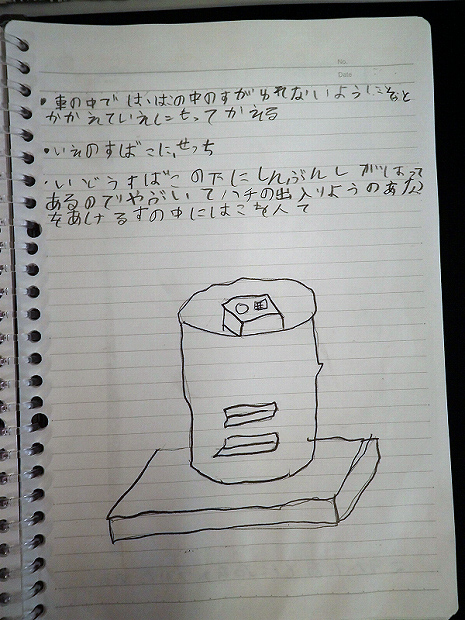 No.
Date
・車の中ではこの中のすがわれないようにそっと
かかえていえにもってかえる
・いえのすばこに、せっち
・いどうすばこの下にしんぶんしがはって
あるのでやぶいてハチの出入りようのあな
をあけるすの中にはこを入て